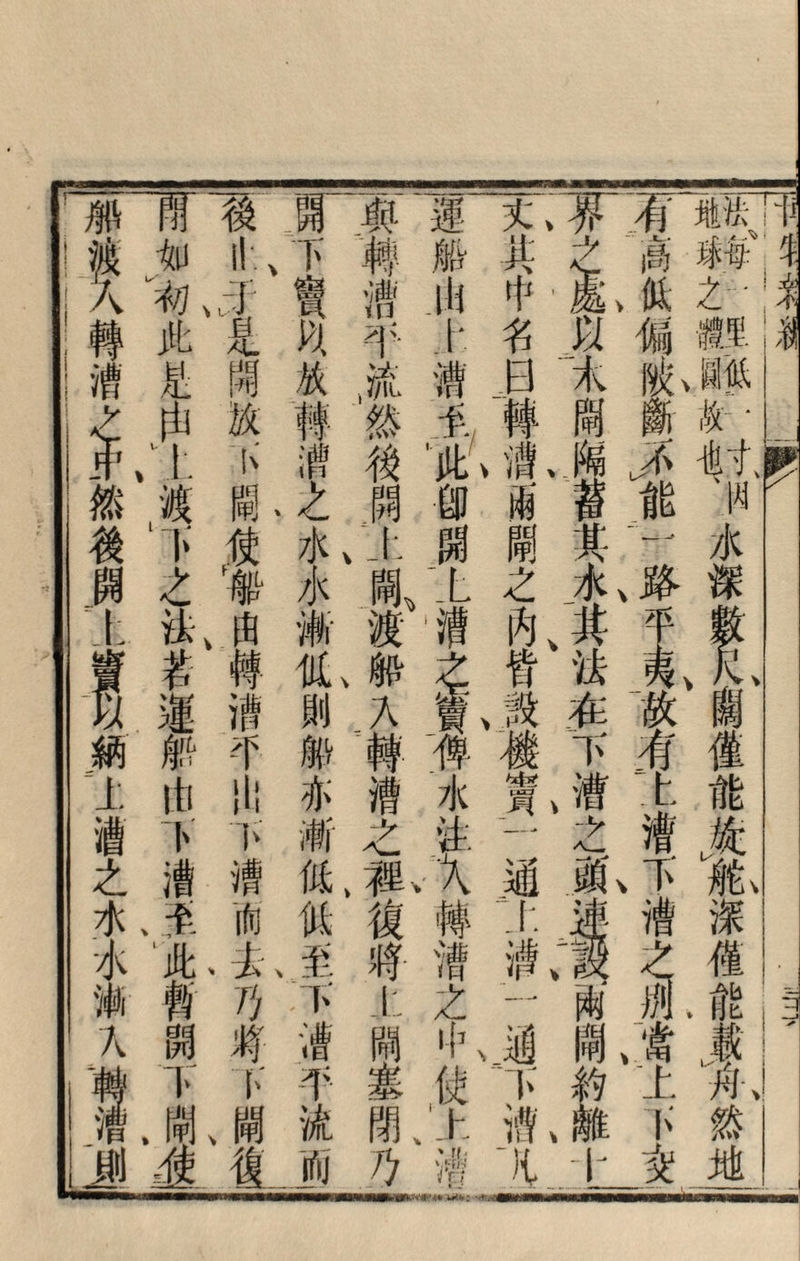 博物新編
法、每一里低一寸、因
地球之體圓故也、
水深數尺、闊僅能旋舵、深僅能載舟、然地
有高低偏陂、斷不能一路平夷、故有上漕下漕之別、當上下交
界之處、以木閘隔蓄其水、其法在下漕之頭、連設兩閘、約離十
丈、其中名曰轉漕、兩閘之内、皆設機竇、一通上漕、一通下漕、凡
運船由上漕至此、卽開上漕之竇、俾水注入轉漕之中、使上漕
與轉漕平流、然後開上閘、渡船入轉漕之裡、復將上閘塞閉、乃
開下竇以放轉漕之水、水漸低、則船亦漸低、低至下漕平流而
後止、于是開放下閘、使船由轉漕平出下漕而去、乃將下閘復
閉如初、此是由上渡下之法、若運船由下漕至此、暫開下閘、使
船渡入轉漕之中、然後開上竇以納上漕之水、水漸入轉漕、則